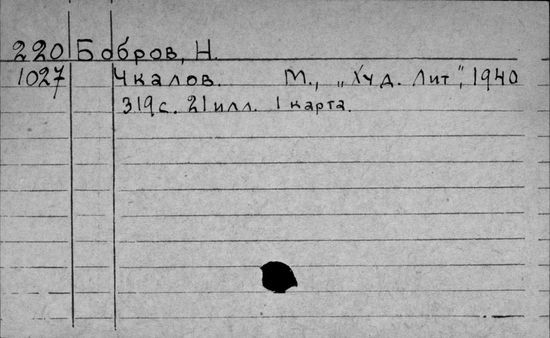 220 Бобров, Н.
1027 Чкалов. М., „Худ. Лит", 1940
319с. 21илл. 1 карта.